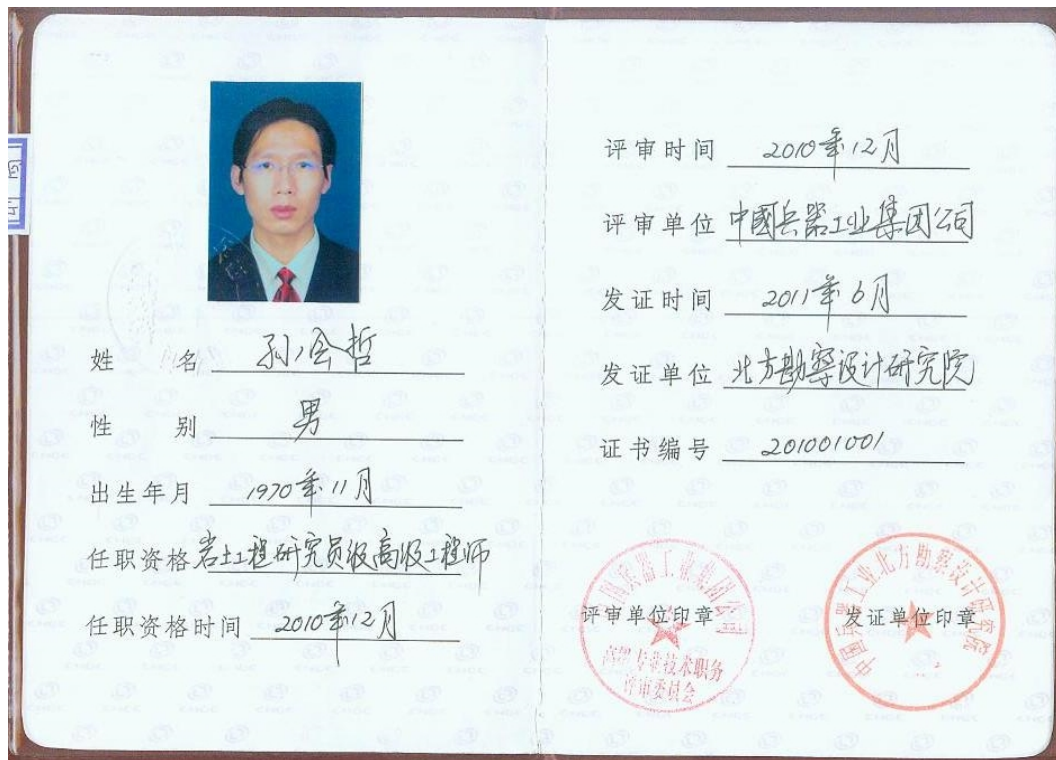 姓 名 孙会哲
性 别 男
出生年月 1970年11月
任职资格 岩土工程研究员级高级工程师
任职资格时间 2010年12月
评审时间 2010年12月
评审单位 中國兵器工业集团公司
发证时间 2011年6月
发证单位 北方勘察设计研究院
证书编号 201001001
评审单位印章
国兵器工业集团公司
高级专业技术职务
评审委员会
发证单位印章
中国兵器工业北方勘察设计研究院